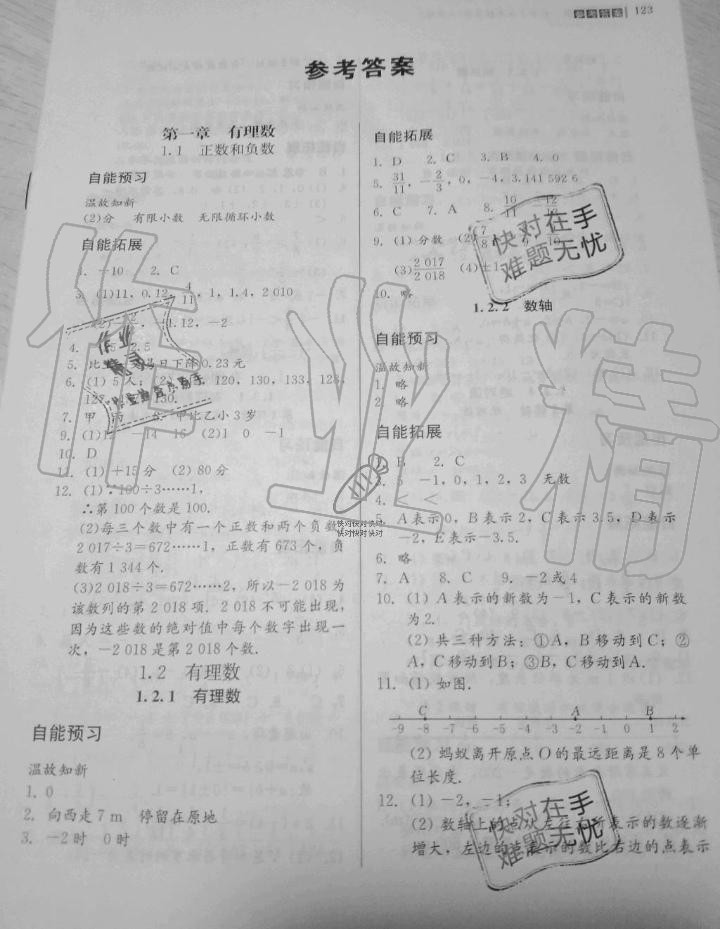 参考答案 123
参考答案
第一章 有理数
1.1 正数和负数
自能预习
温故知新
(2)分 有限小数 无限循环小数
自能拓展
1. -10 2. C
3. (1)11, 0.12, 4/11, 1, 1.4, 2 010
-1.12, -2
4. 2.5
5. 日下降0.23元
6. (1)5人; 120, 130, 133, 128,
127, 130.
7. 甲 丙 8. 甲比乙小3岁
9. (1)12 -14 16 (2)1 0 -1
10. D
11. (1)+15分 (2)80分
12. (1)∵100÷3……1,
∴第100个数是100.
(2)每三个数中有一个正数和两个负数,
2 017÷3=672……1, 正数有673个, 负
数有1 344个.
(3)2 018÷3=672……2, 所以-2 018为
该数列的第2 018项. 2 018不可能出现,
因为这些数的绝对值中每个数字出现一
次, -2 018是第2 018个数.
1.2 有理数
1.2.1 有理数
自能预习
温故知新
1. 0
2. 向西走7 m 停留在原地
3. -2时 0时
自能拓展
1. D 2. C 3. B 4. 0
5. 31/11, -2/3, 0, -4, 3.141 592 6
6. C 7. A 8.
9. (1)分数 (2)
(3)2 017/2 018 (4)±1
10. 略
1.2.2 数轴
自能预习
温故知新
1. 略
2. 略
自能拓展
1. B 2. C
3. 5 -1, 0, 1, 2, 3 无数
4. < <
5. A表示0, B表示2, C表示3.5, D表示
-2, E表示-3.5.
6. 略
7. A 8. C 9. -2或4
10. (1)A表示的新数为-1, C表示的新数
为2.
(2)共三种方法; ①A, B移动到C; ②
A, C移动到B; ③B, C移动到A.
11. (1)如图.
C A B
-9 -8 -7 -6 -5 -4 -3 -2 -1 0 1 2
(2)蚂蚁离开原点O的最远距离是8个单
位长度.
12. (1)-2, -1;
(2)数轴上的点从左往右所表示的数逐渐
增大, 左边的点表示的数比右边的点表示
作业精
快对在手
难题无忧
快对快对快对
快对快对快对
快对在手
难题无忧